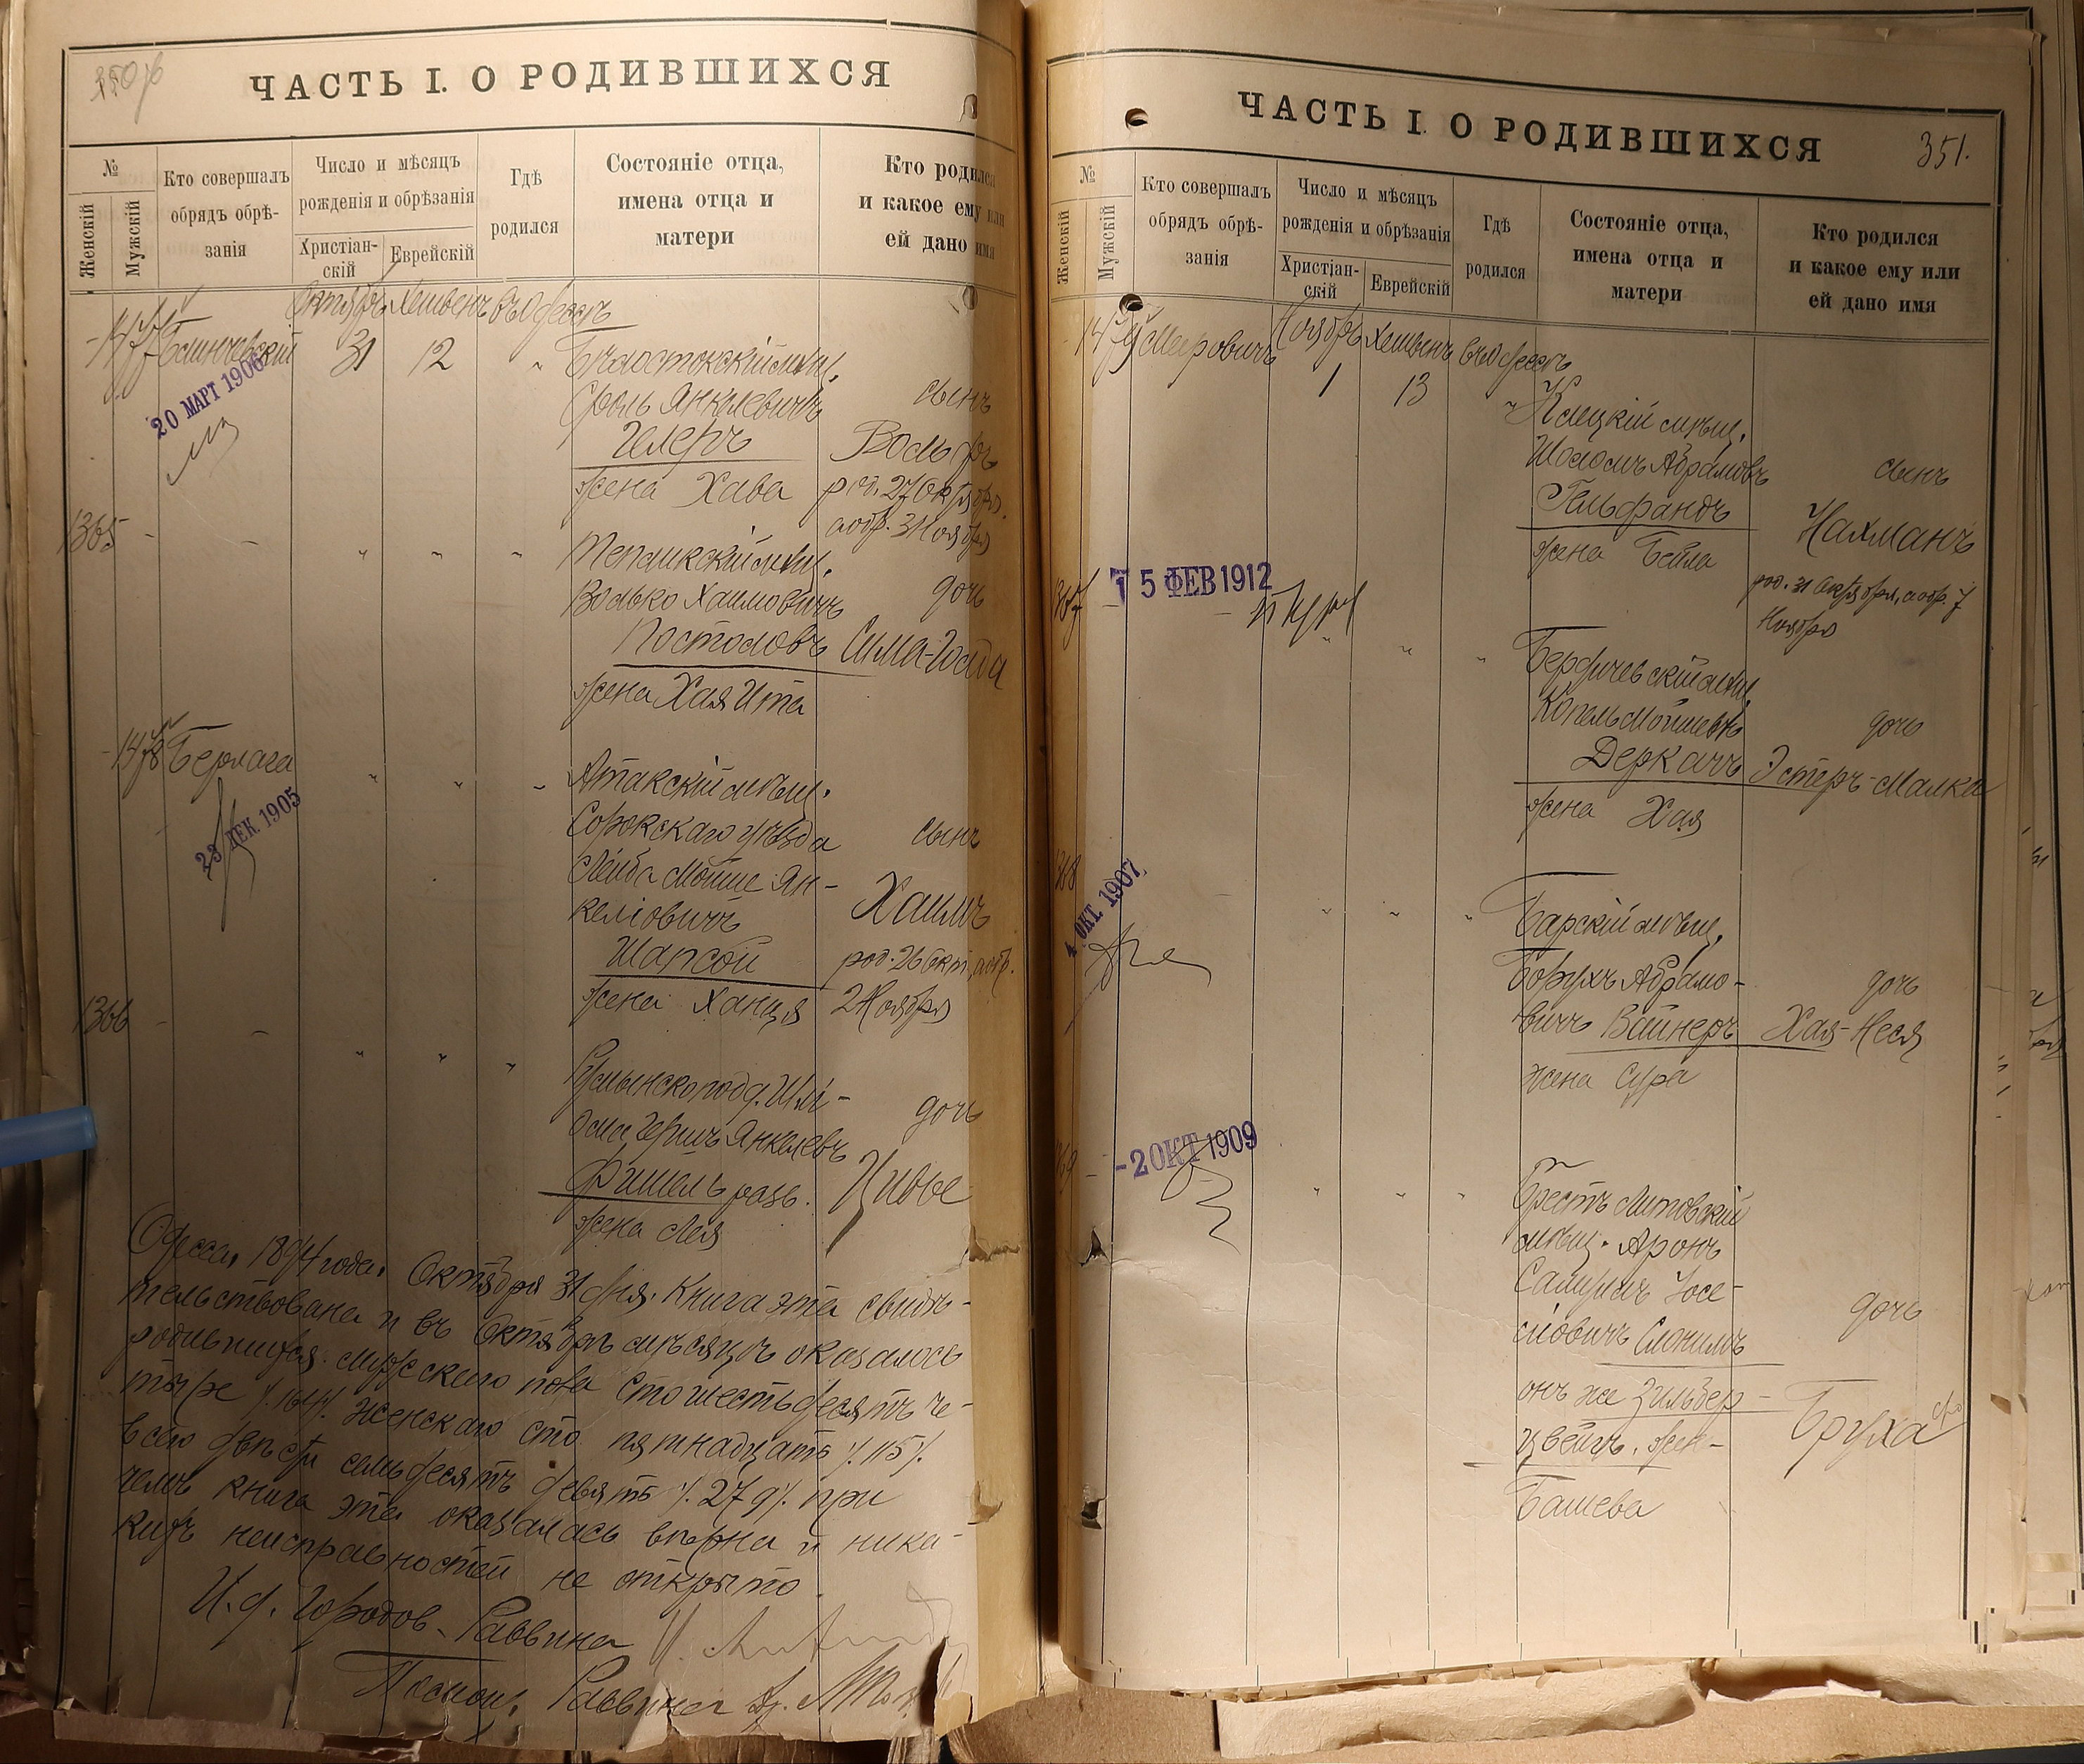 350 об
ЧАСТЬ I. О РОДИВШИХСЯ
№
Женскій
Мужскій
Кто совершалъ
обрядъ обрѣ-
занія
Число и мѣсяцъ
рожденія и обрѣзанія
Христіан-
скій
Еврейскій
Гдѣ
родился
Состояніе отца,
имена отца и
матери
Кто родился
и какое ему или
ей дано имя
Октябрь Хешвенъ въ Одессѣ
1477
31 12
Бѣлостокскій мѣщ.
Сроль Янкелевичъ
Гелеръ
жена Хава
сынъ
Вольфъ
род. 27 Октября,
а обр. 3 Ноября
20 МАРТ 1906
1365
Тепликскій мѣщ.
Волько Хаимовичъ
Постоловъ
жена Хая Ита
дочь
Сима-Голда
1478 Берлага
23 ДЕК. 1905
Атакскій мѣщ.
Сорокскаго уѣзда
Лейба Мойше Ян-
келіовичъ
Шапсой
жена Ханця
сынъ
Хаимъ
род. 26 Окт., а обр.
2 Ноября
1366
Румынскоподд. Шлі-
ома Гершъ Янкелевъ
Фишель разв.
жена Лея
дочь
Цивье
Одесса, 1894 года, Октября 31 дня. Книга эта свидѣ-
тельствована и въ Октябрѣ мѣсяцѣ оказалось
родившихся мужскаго пола сто шестьдесятъ че-
тыре /.164/. женскаго сто пятнадцать /.115/.
всего двѣсти семьдесятъ девять /.279/. при
чемъ книга эта оказалась вѣрна и ника-
кихъ неисправностей не открыто.
И. д. Городов. Раввина
Помощ. Раввина
ЧАСТЬ I. О РОДИВШИХСЯ
351.
№
Женскій
Мужскій
Кто совершалъ
обрядъ обрѣ-
занія
Число и мѣсяцъ
рожденія и обрѣзанія
Христіан-
скій
Еврейскій
Гдѣ
родился
Состояніе отца,
имена отца и
матери
Кто родился
и какое ему или
ей дано имя
1479 Меировичъ Ноябрь Хешвенъ въ Одессѣ
1 13
мѣщ.
Шоломъ Абрамовъ
Гельфандъ
жена Бейла
сынъ
Нахманъ
род. 31 Октября, а обр. 7
Ноября
1367
15 ФЕВ 1912
Бердичевскій мѣщ.
Копель Мошковъ
Деркачъ
жена Хая
дочь
Эстеръ-Малка
1368
4 ОКТ. 1907
Барскій мѣщ.
Борухъ Абрамо-
вичъ Вайнеръ
жена Сура
дочь
Хая-Неся
-2 ОКТ 1909
Брестъ Литовскій
мѣщ. Аронъ
Салимъ Іосе-
леовичъ Слонимъ
онъ же Зильбер-
цвейгъ, жен-
Башева
дочь
Бруха